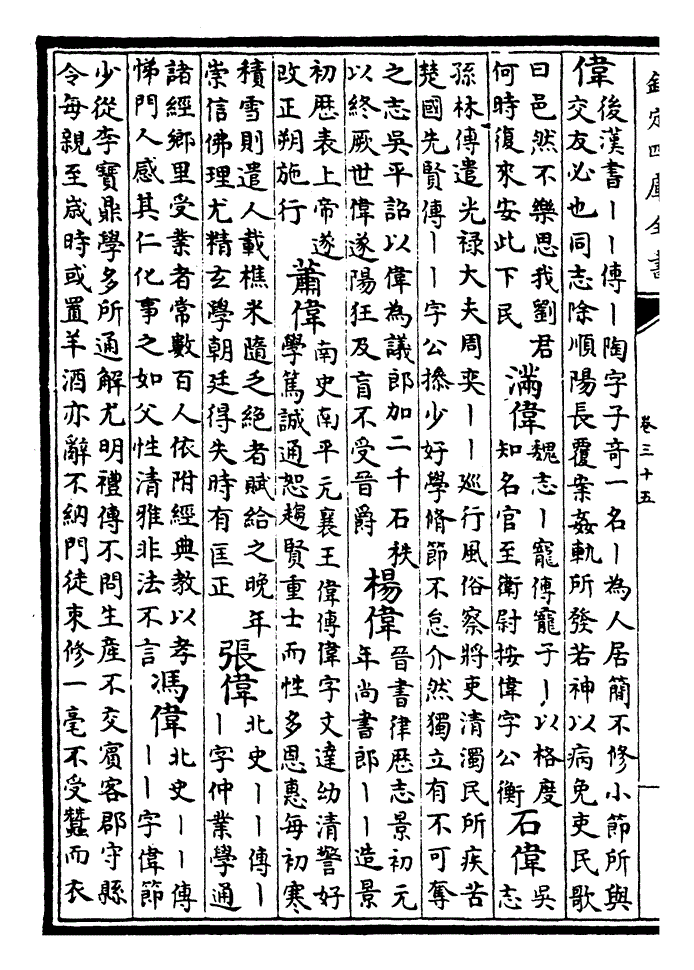 欽定四庫全書
卷三十五
一
偉
後漢書丨丨傳丨陶字子奇一名丨為人居簡不修小節所與
交友必也同志除順陽長覆案姦軌所發若神以病免吏民歌
曰邑然不樂思我劉君
何時復來安此下民
滿偉
魏志丨寵傳寵子丨以格度
知名官至衛尉按偉字公衡
石偉
吳
志
孫林傳遣光禄大夫周奕丨丨巡行風俗察將吏清濁民所疾苦
楚國先賢傳丨丨字公操少好學脩節不怠介然獨立有不可奪
之志吳平詔以偉為議郎加二千石秩
以終厥世偉遂陽狂及盲不受晉爵
楊偉
晉書律歴志景初元
年尚書郎丨丨造景
初歴表上帝遂
改正朔施行
蕭偉
南史南平元襄王偉傳偉字文達幼清警好
學篤誠通恕趨賢重士而性多恩惠每初寒
積雪則遣人載樵米隨乏絕者賦給之晚年
崇信佛理尤精玄學朝廷得失時有匡正
張偉
北史丨丨傳丨
丨字仲業學通
諸經鄉里受業者常數百人依附經典教以孝
悌門人感其仁化事之如父性清雅非法不言
馮偉
北史丨丨傳
丨丨字偉節
少從李寶鼎學多所通解尤明禮傳不問生產不交賓客郡守縣
令每親至歲時或置羊酒亦辭不納門徒束修一毫不受蠶而衣